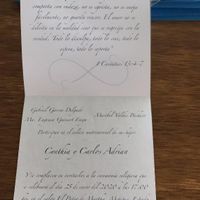 comporta con rudeza, no es egoísta, no se enoja
fácilmente, no guarda rencor. El amor no se
deleita en la maldad sino que se regocija con
la verdad. Todo lo disculpa, todo lo cree, todo lo
espera, todo lo soporta"
1 Corintios 13:4-7
Gabriel García Delgado
Ma. Eugenia Guisard Trejo
Maribel Valdez
Participan el enlace matrimonial de sus hijos
Cynthia y Carlos Adrián
Y se complacen en invitarles a la ceremonia religiosa que
se celebrará el día 25 de enero del 2020 a las 17:00